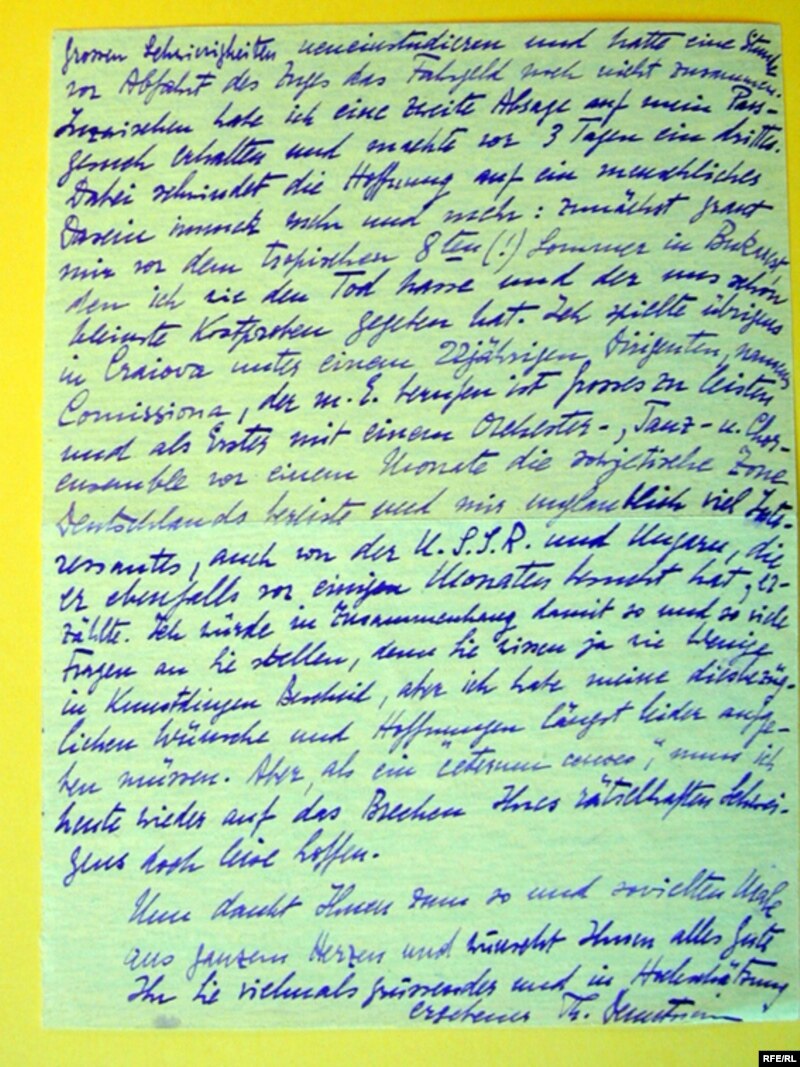 grossen Schwierigkeiten neueinstudieren und hatte eine Stunde
vor Abfahrt des Zuges das Fahrgeld noch nicht zusammen.
Inzwischen habe ich eine zweite Absage auf mein Pass-
gesuch erhalten und machte vor 3 Tagen ein drittes.
Dabei schwindet die Hoffnung auf ein menschliches
Dasein immer mehr und mehr: zunächst graut
mir vor dem tropischen 8ten (!) Sommer in Bukarest,
den ich wie den Tod hasse und der uns schon
kleinste Kostproben gegeben hat. Ich spielte übrigens
in Craiova unter einem 22jährigen Dirigenten, namens
Comissiona, der m. E. berufen ist Grosses zu leisten
und als Erster mit einem Orchester-, Tanz- u. Chor-
ensemble vor einem Monate die sowjetische Zone
Deutschlands bereiste und mir unglaublich viel Inte-
ressantes, auch von der U.S.S.R. und Ungarn, die
er ebenfalls vor einigen Monaten besucht hat, er-
zählte. Ich würde in Zusammenhang damit so und so viele
Fragen an Sie stellen, denn Sie wissen ja wie Wenige
in Kunstdingen Bescheid, aber ich habe meine diesbezüg-
lichen Wünsche und Hoffnungen längst leider aufge-
ben müssen. Aber, als ein "ceterum censeo", muss ich
heute wieder auf das Brechen Ihres rätselhaften Schwei-
gens doch leise hoffen.
Nun dankt Ihnen zum so und sovielten Male
aus ganzem Herzen und wünscht Ihnen alles Gute
Ihr Sie vielmals grüssender und in Hochschätzung
ergebener Th.
RFE/RL